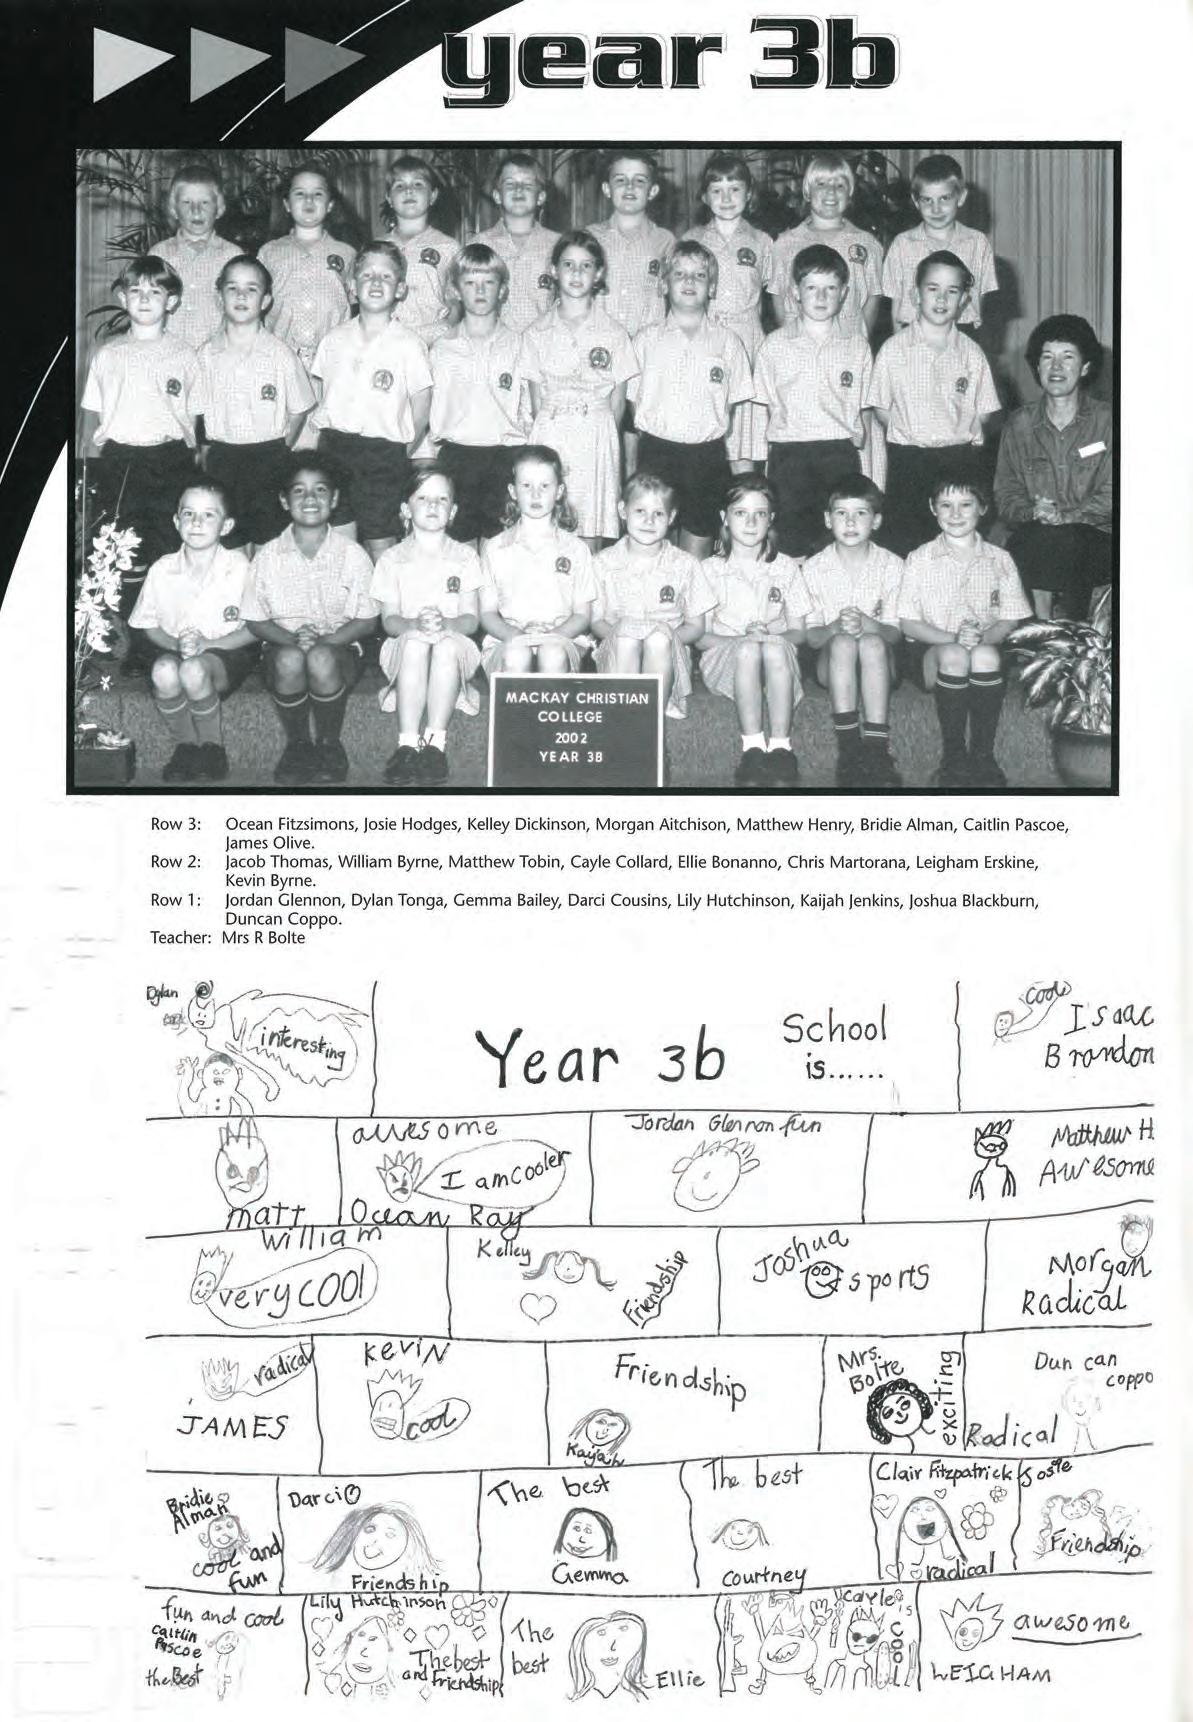 year 3b
MACKAY CHRISTIAN
COLLEGE
2002
YEAR 3B
Row 3: Ocean Fitzsimons, Josie Hodges, Kelley Dickinson, Morgan Aitchison, Matthew Henry, Bridie Alman, Caitlin Pascoe,
James Olive.
Row 2: Jacob Thomas, William Byrne, Matthew Tobin, Cayle Collard, Ellie Bonanno, Chris Martorana, Leigham Erskine,
Kevin Byrne.
Row 1: Jordan Glennon, Dylan Tonga, Gemma Bailey, Darci Cousins, Lily Hutchinson, Kaijah Jenkins, Joshua Blackburn,
Duncan Coppo.
Teacher: Mrs R Bolte
Dylan
interesting
Year 3b
School
is......
cool
Isaac
Brandon
matt
awesome
I am cooler
Ocean Ray
Jordan Glennon fun
Matthew H.
Awesome
William
very cool
Kelley
Friendship
Joshua
sports
Morgan
Radical
radical
JAMES
Kevin
cool
Friendship
Kaijah
Mrs.
Bolte
exciting
Duncan
coppo
Radical
Bridie
Alman
cool and
fun
Darci
Friendship
The best
Gemma
The best
courtney
Clair Fitzpatrick
radical
Josie
Friendship
fun and cool
Caitlin
Pascoe
the Best
Lily Hutchinson
The best
and Friendship
The
best
Ellie
Cayle
is
cool
awesome
LEIGHAM